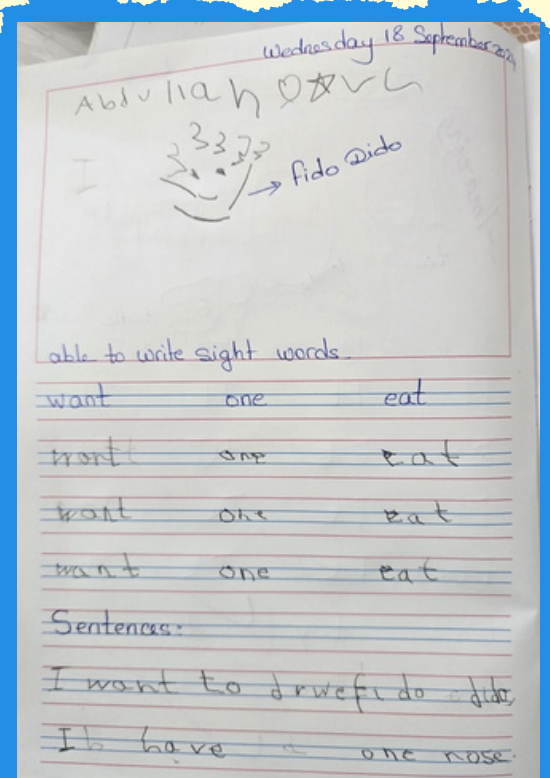 Wednesday 18 September 2024
Abdullah
Fido Dido
able to write sight words.
want one eat
wort one eat
want one eat
want one eat
Sentences:
I want to drwefido dido,
I have one nose.